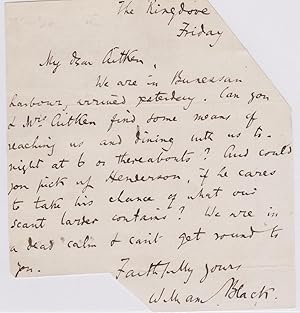 The Ringdove
Friday
My dear Aitken,
We are in Bunessan
harbour, arrived yesterday. Can you
& Mrs Aitken find some means of
reaching us and dining with us to-
night at 6 or thereabouts? And could
you pick up Henderson, if he cares
to take his chance of what our
scant larder contains? We are in
a dead calm & can't get round to
you.
Faithfully yours
William Black.